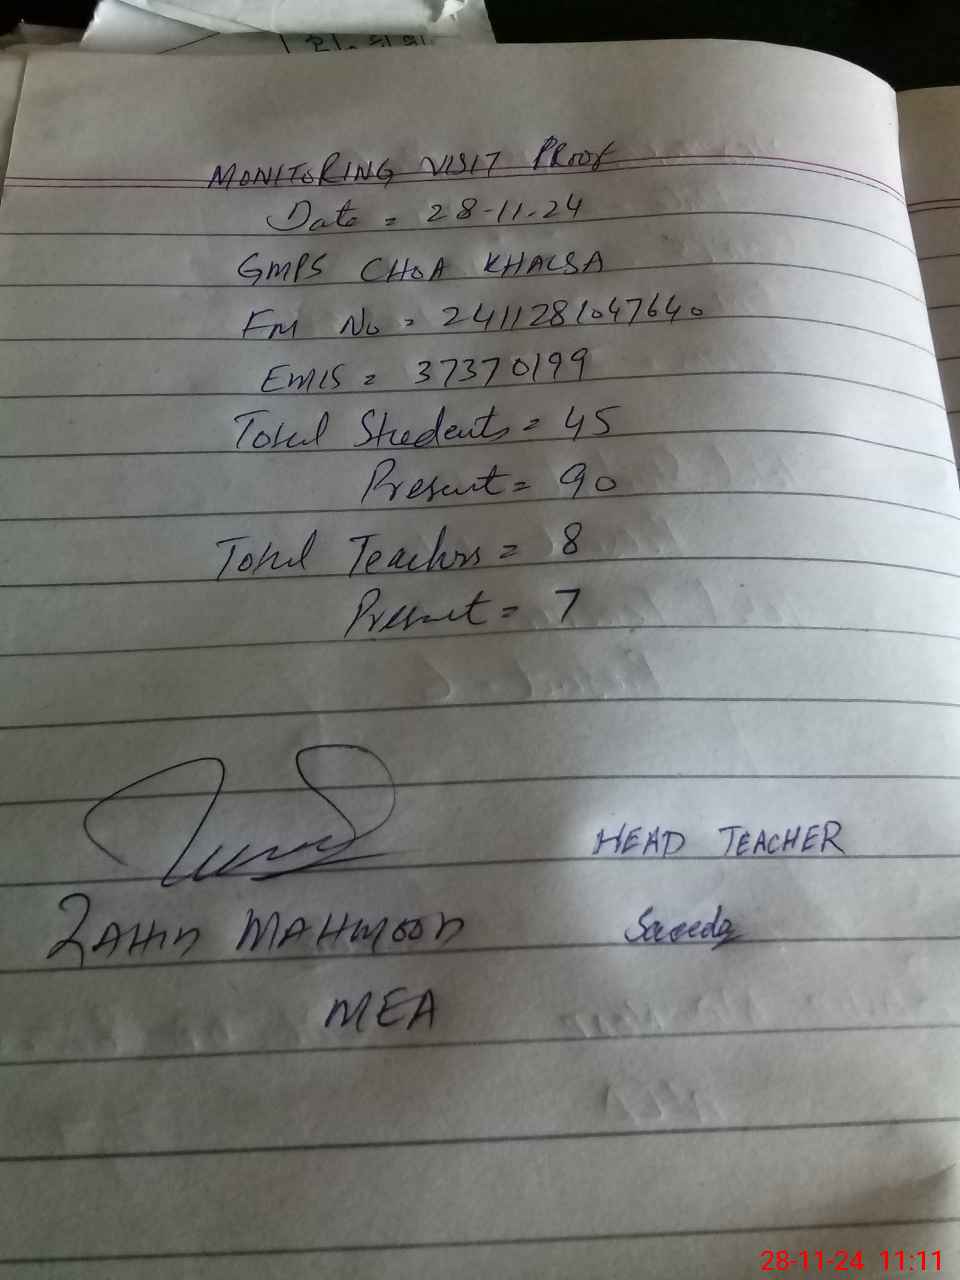 MONITORING VISIT PROOF
Date = 28-11-24
GMPS CHOA KHALSA
FM No = 2411281047640
EMIS = 37370199
Total Students = 45
Present = 90
Total Teachers = 8
Present = 7
HEAD TEACHER
ZAHID MAHMOOD
Saeeda
MEA
28-11-24 11:11